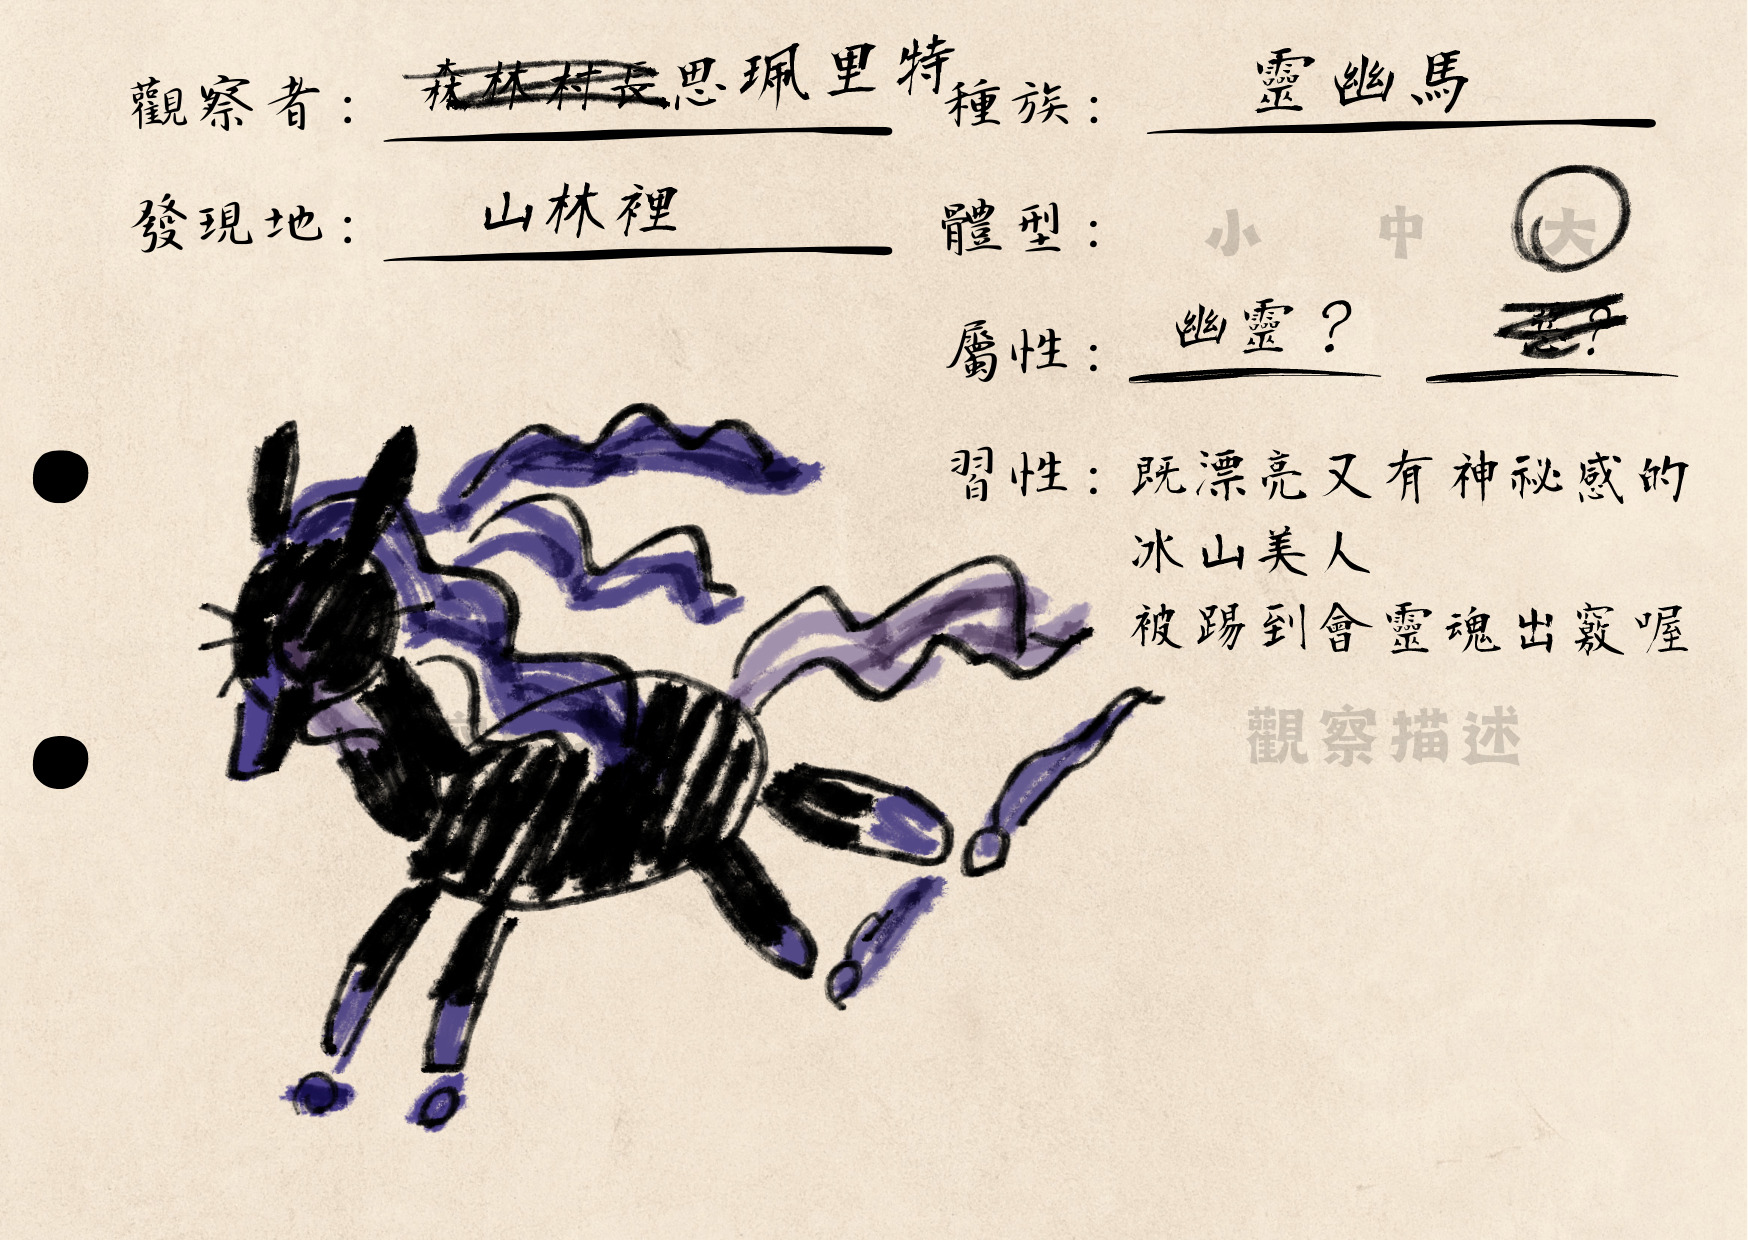 觀察者： 森林村長思珮里特
種族： 靈幽馬
發現地： 山林裡
體型： 小 中 大
屬性： 幽靈？ ？
習性： 既漂亮又有神祕感的
冰山美人
被踢到會靈魂出竅喔
觀察描述